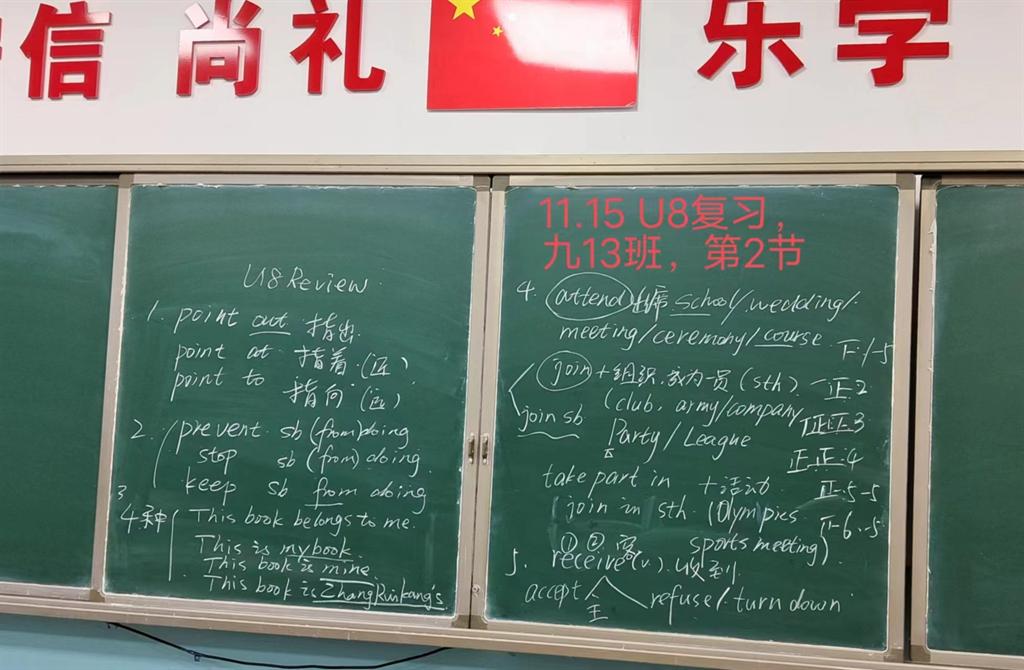 信 尚 礼 乐 学
11.15 U8复习，
九13班，第2节
U8 Review
1. point out 指出
point at 指着(近)
point to 指向(远)
2. prevent sb (from) doing
stop sb (from) doing
keep sb from doing
3
4种 This book belongs to me.
This is my book
This book is mine
This book is Zhang
4. attend 出席 school/wedding/
meeting/ceremony/course
join + 组织.成为一员 (sth)
join sb (club, army/company
Party/League
take part in + 活动
join in sth (Olympics
sports meeting)
5. receive (v.) 收到
accept refuse/turn down
正:2
正正:3
正正:4
正:5-5